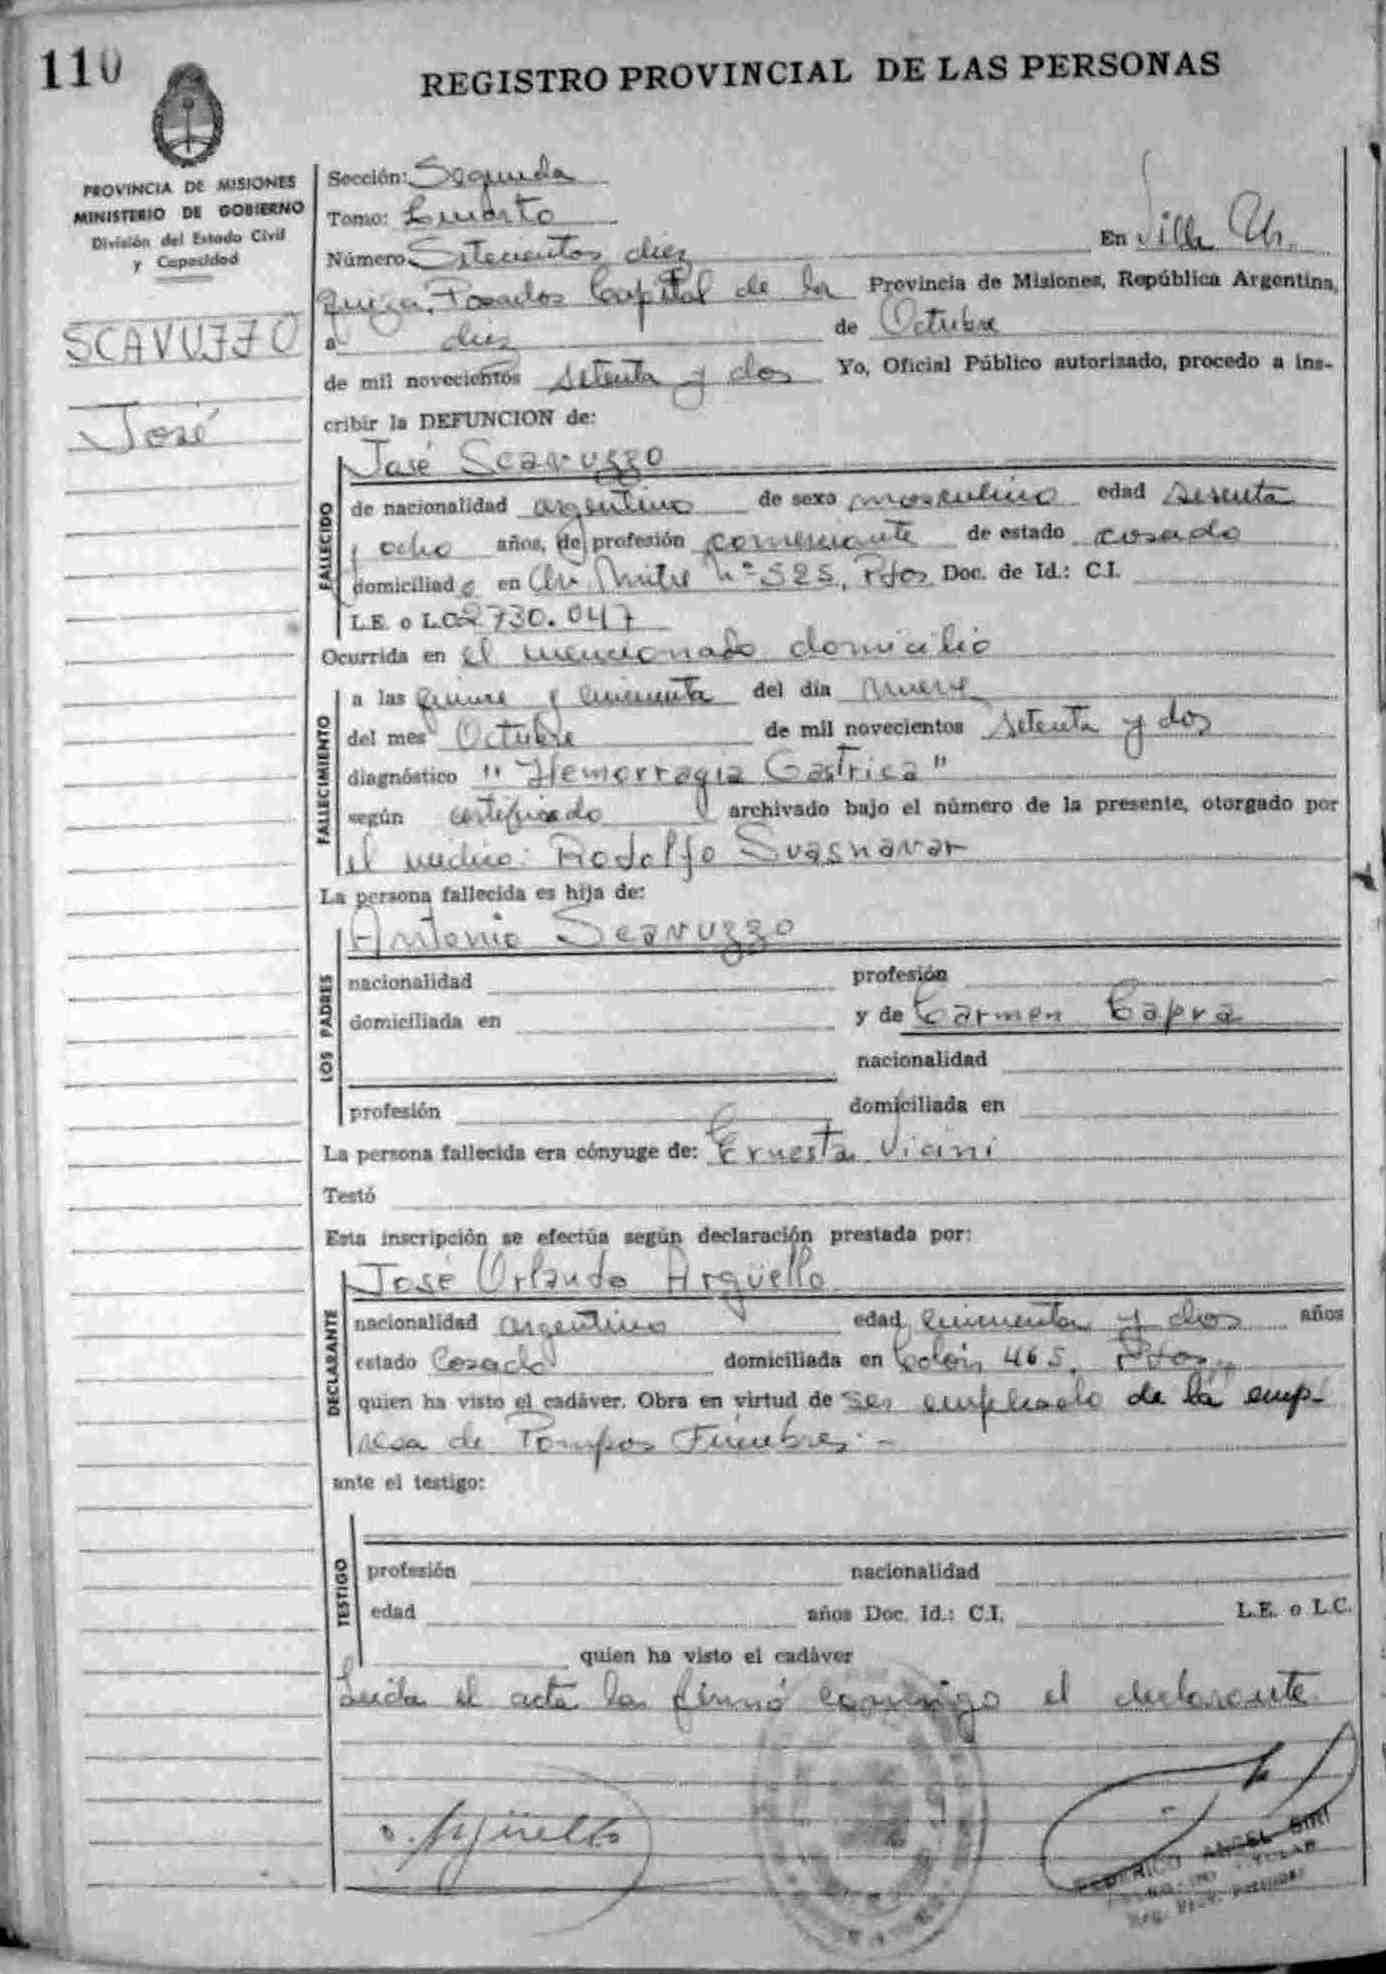 110
REGISTRO PROVINCIAL DE LAS PERSONAS
PROVINCIA DE MISIONES
MINISTERIO DE GOBIERNO
División del Estado Civil
y Capacidad
SCAVUZZO
José
Sección: Segunda
Tomo: Cuarto
Número Setecientos diez En Villa Ur-
quiza, Posadas Capital de la Provincia de Misiones, República Argentina,
a diez de Octubre
de mil novecientos setenta y dos Yo, Oficial Público autorizado, procedo a ins-
cribir la DEFUNCION de:
FALLECIDO
José Scavuzzo
de nacionalidad argentino de sexo masculino edad sesenta
y ocho años, de profesión comerciante de estado casado
domiciliado en Av. Mitre Nº 525, Pdas Doc. de Id.: C.I.
L.E. o L.C. 2730.047
Ocurrida en el mencionado domicilio
FALLECIMIENTO
a las quince y cincuenta del día nueve
del mes Octubre de mil novecientos setenta y dos
diagnóstico "Hemorragia Gastrica"
según certificado archivado bajo el número de la presente, otorgado por
el médico: Rodolfo Suasnavar
La persona fallecida es hija de:
LOS PADRES
Antonio Scavuzzo
nacionalidad profesión
domiciliada en y de Carmen Capra
nacionalidad
profesión domiciliada en
La persona fallecida era cónyuge de: Ernesta Vicini
Testó
Esta inscripción se efectúa según declaración prestada por:
DECLARANTE
José Orlando Argüello
nacionalidad argentino edad cincuenta y dos años
estado Casado domiciliada en Colón 465, Pdas
quien ha visto el cadáver. Obra en virtud de ser empleado de la emp-
resa de Pompas Fúnebres.-
ante el testigo:
TESTIGO
profesión nacionalidad
edad años Doc. Id.: C.I. L.E. o L.C.
quien ha visto el cadáver
Leida el acta la firmó conmigo el declarante
o. Argüello
FEDERICO ANGEL